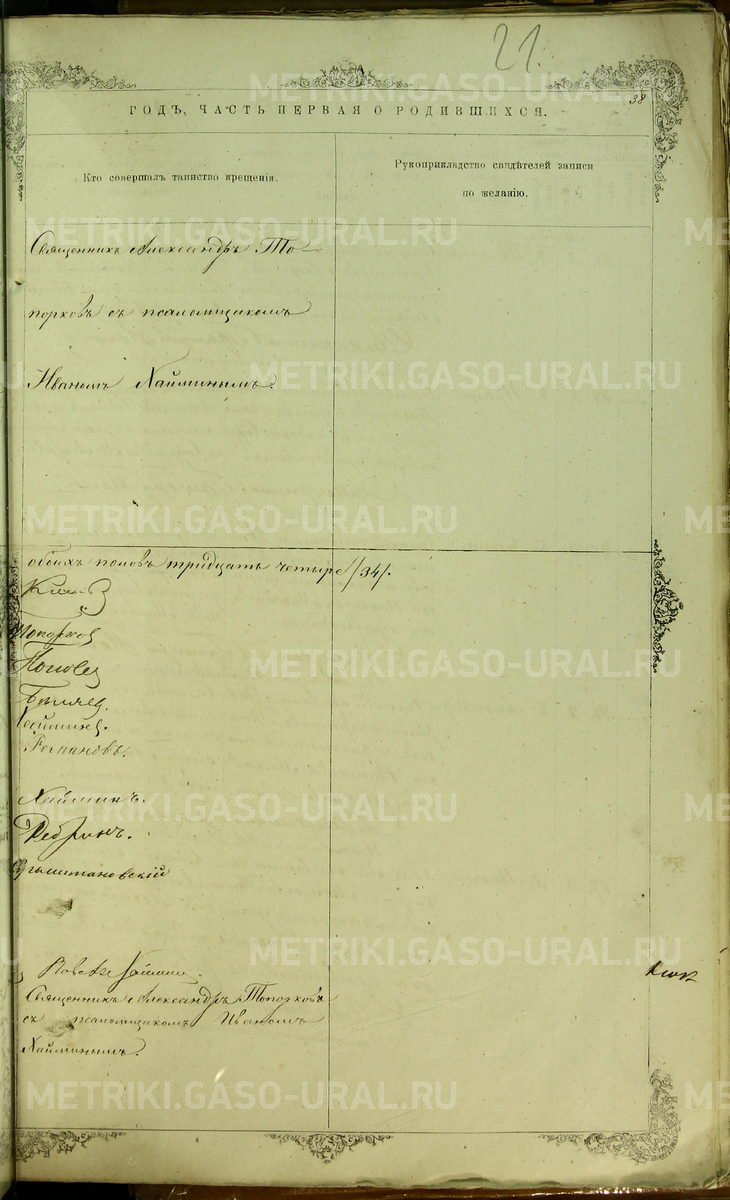 21.
38
ГОДЪ, ЧАСТЬ ПЕРВАЯ О РОДИВШИХСЯ.
Кто совершалъ таинство крещенія.
Рукоприкладство свидѣтелей записи
по желанію.
Священникъ Александръ То-
порковъ съ псаломщикомъ
Иваномъ Хайминымъ.
обоихъ половъ тридцать четыре /34/.
Топорковъ
Поповъ
Хайминъ.
Романовъ.
Хайминъ.
Ребринъ.
Священникъ Александръ Топорковъ
съ псаломщикомъ Иваномъ
Хайминымъ.
METRIKI.GASO-URAL.RU